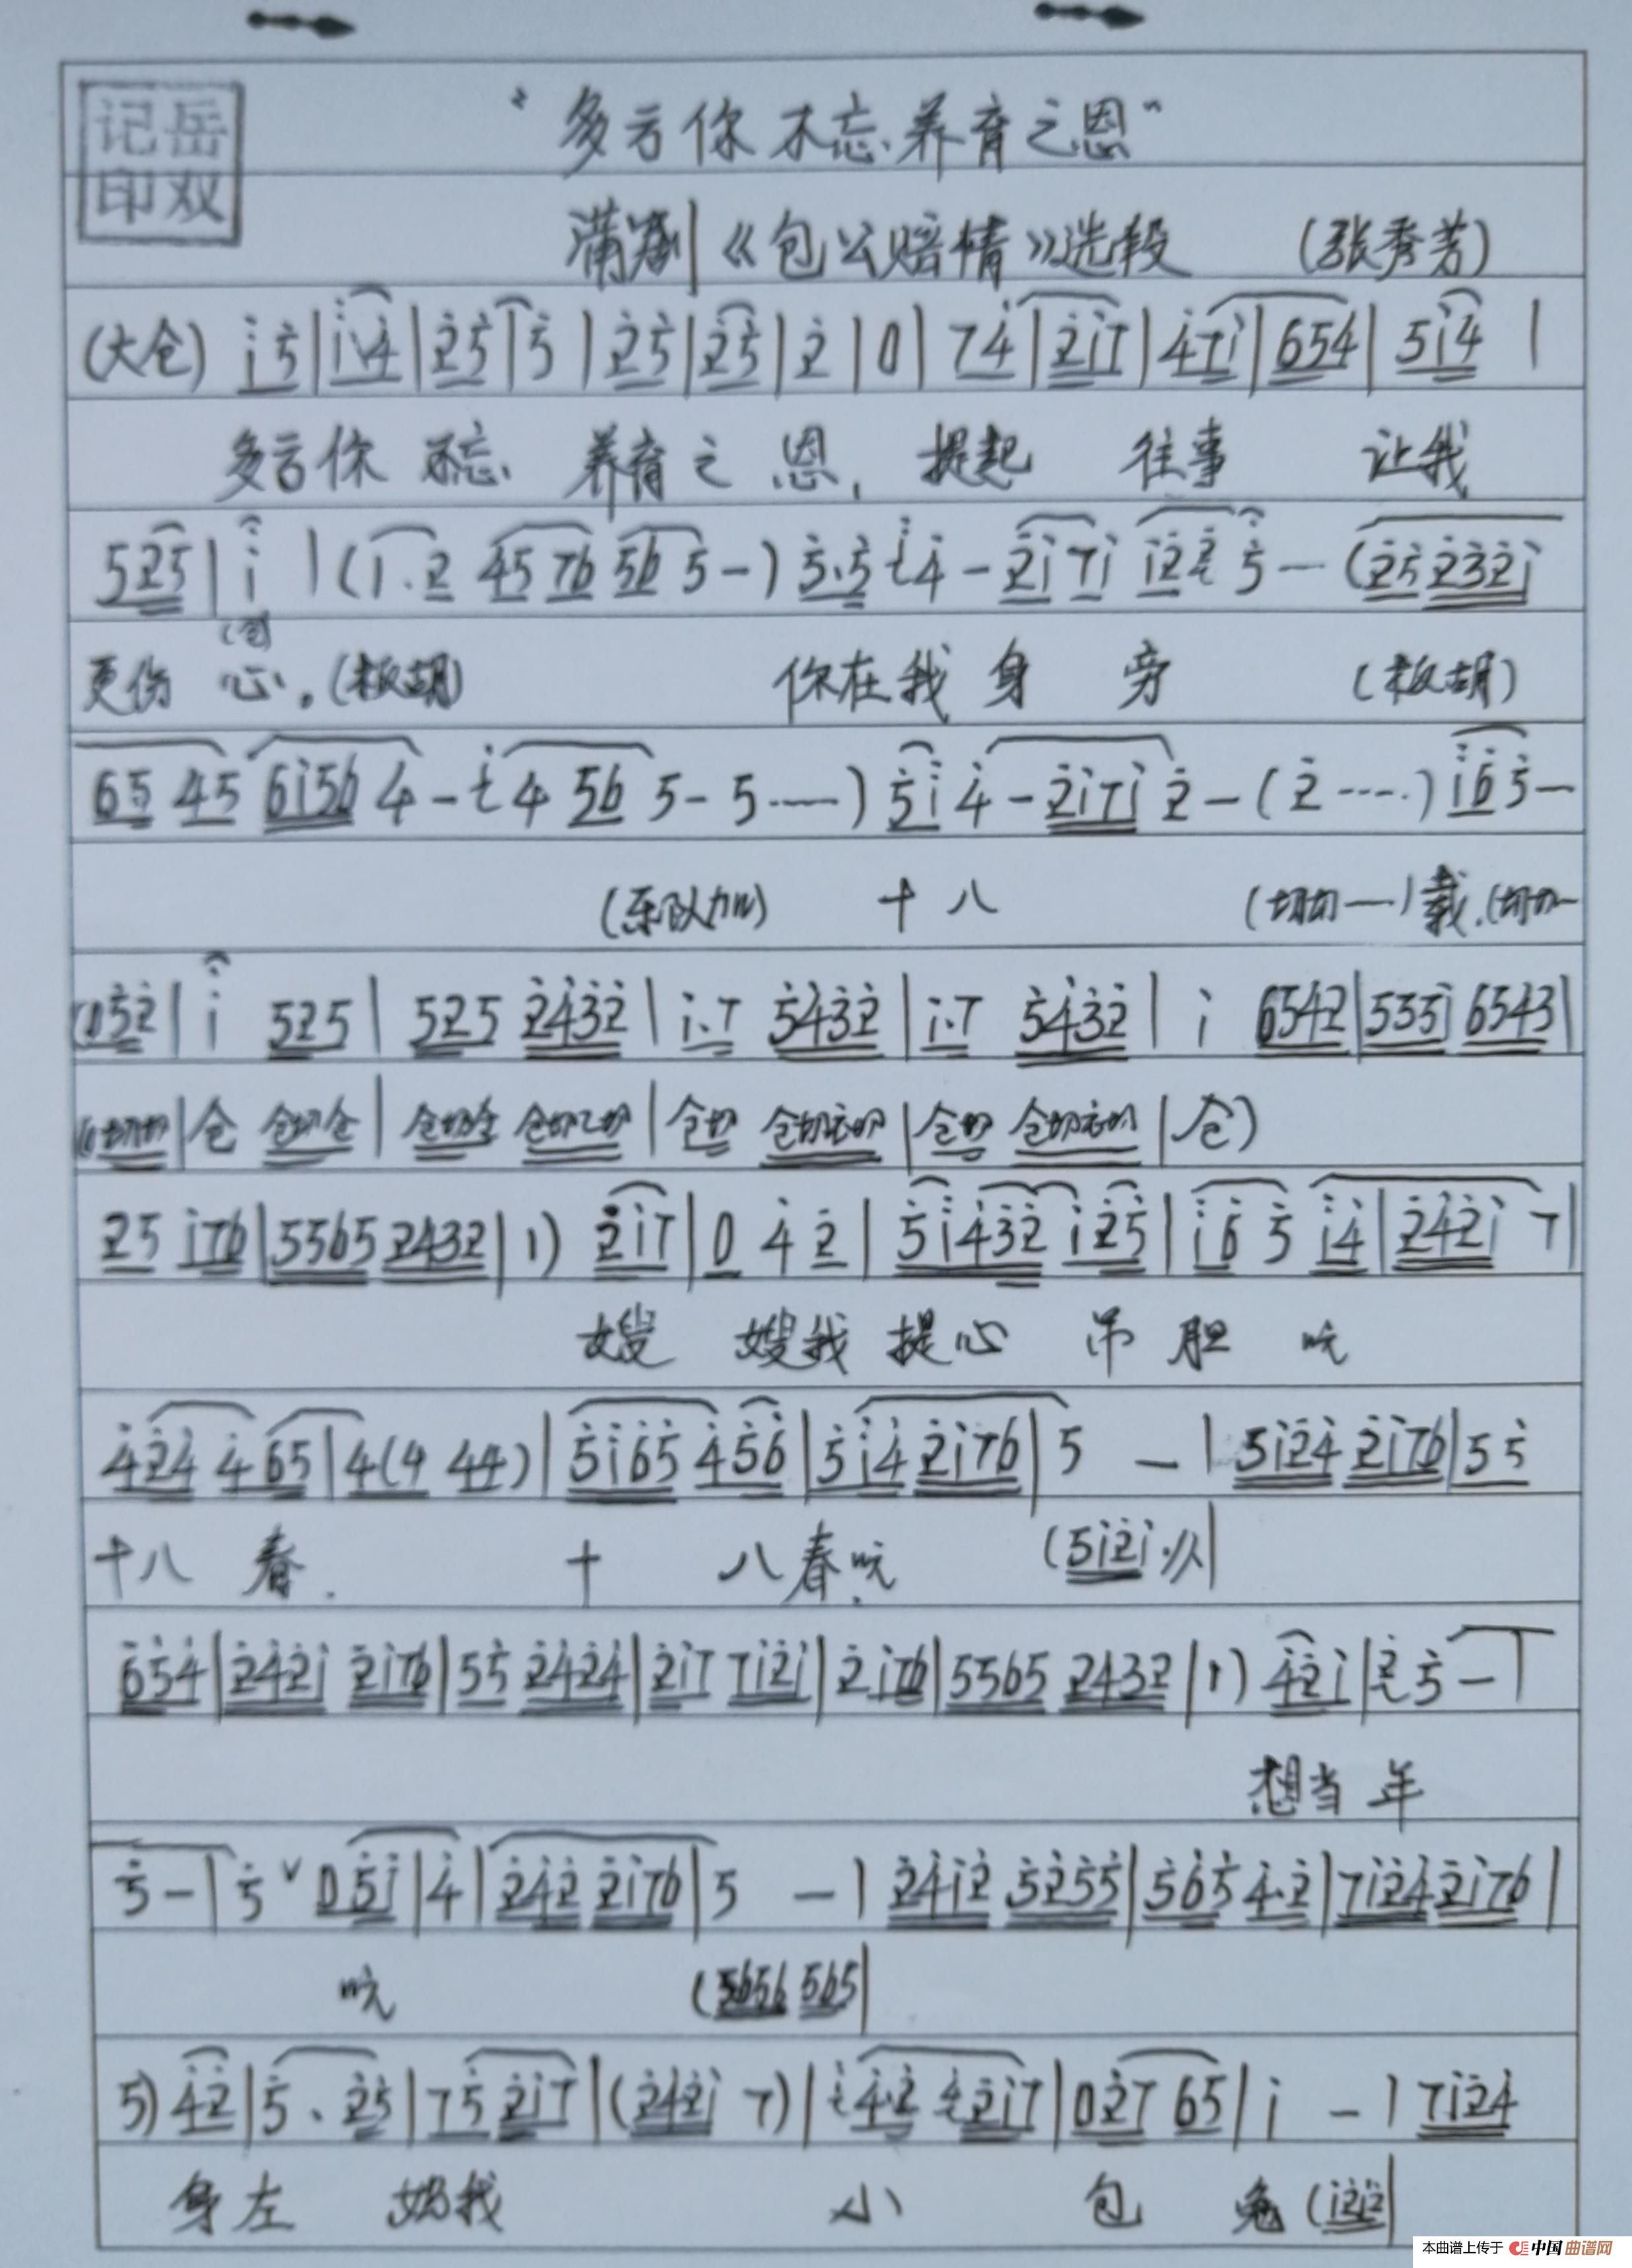 记岳
印双
"多言你不忘养育之恩"
蒲剧《包公赔情》选段 (张秀芳)
(大仓) i5|i\4|25|5|25|25|2|0|74|2i7|47i|654|5i4|
多言你 不忘 养育之 恩, 提起 往事 让我
525|i|(1.2 45 76 56 5-) 5.5 i4-2i 7i i2 2 5--(25232i
(仓)
更伤 心。(板胡) 你在我身 旁 (板胡)
65 45 6i56 4-i4 56 5-5……)5i 4-2i7i 2-(2……)i65-
(乐队加) 十八 (切切一)载.(切切一
(052|i 525|525 2432|i.7 5432|i.7 5432|i 6542|535i 6543|
切切|仓 仓切仓|仓切仓 仓切乙切|仓切 仓切衣切|仓切 仓切衣切|仓)
25 i76|5565 2432|1) 2i7|0 4 2|5i432 i25|i6 5 i4|242i 7|
嫂 嫂我 提心 吊 胆 吭
424 465|4(4 44)|5i65 456|5i4 2i76|5 -|5i24 2i76|55
十八 春. 十 八春吭. (5i2i ·//|
654|242i 2i76|55 2424|2i7 7i2i|2i76|5565 2432|1) 42i|2 5-|
想当 年
5-|5ˇ05i|4|242 2i76|5 -|24i2 5255|565 4.2|7i24 2i76|
吭 (5656 565|
5) 42|5.25|75 2i7|(242i 7)|i4.2 42i7|027 65|i -|7i24
身左 奶我 小 包 兔(i2i2|
本曲谱上传于 中国曲谱网